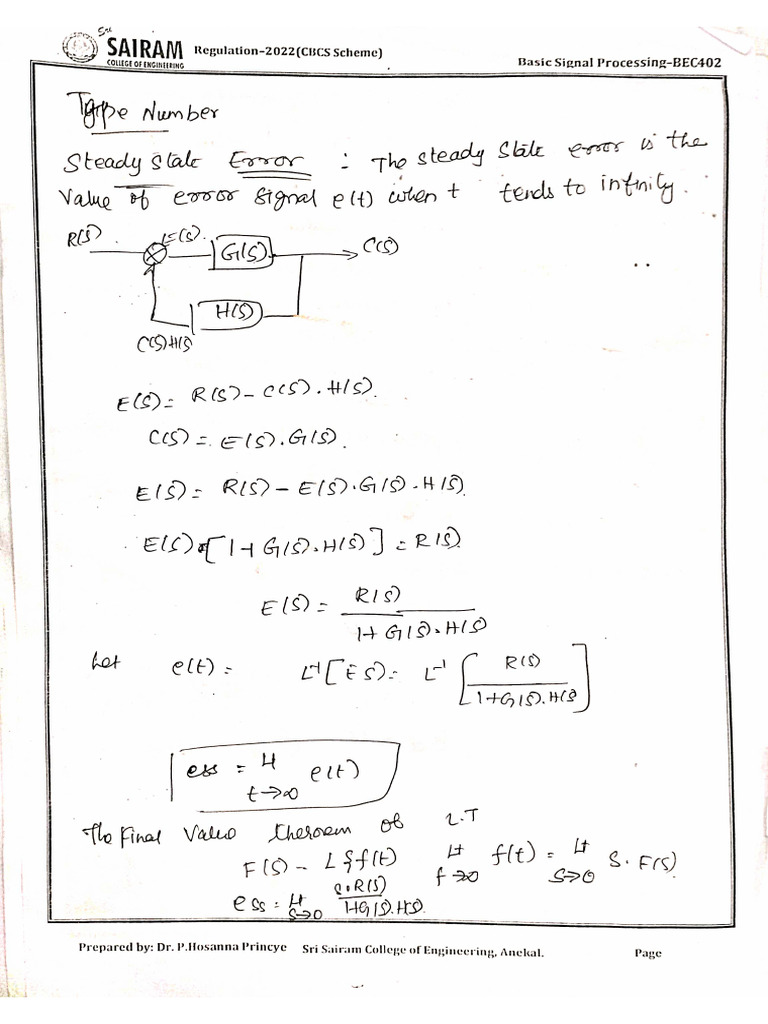 Sri
SAIRAM
COLLEGE OF ENGINEERING
Regulation-2022(CBCS Scheme)
Basic Signal Processing-BEC402
Type Number
Steady State Error : The steady State error is the
Value of error signal e(t) when t tends to infinity.
R(S) E(S). G(S) C(S)
H(S)
C(S)H(S)
E(S) = R(S) - C(S) . H(S).
C(S) = E(S) . G(S).
E(S) = R(S) - E(S) . G(S) . H(S).
E(S) [1 + G(S) . H(S)] = R(S)
E(S) = R(S) / 1 + G(S) . H(S)
Let e(t) = L⁻¹[E S) = L⁻¹ [R(S) / 1 + G(S) . H(S)]
ess = Lt t→∞ e(t)
The Final Value theroem of L.T
F(S) - L{f(t) Lt t→∞ f(t) = Lt S→0 S . F(S)
ess = Lt S→0 S . R(S) / 1+G(S) . H(S).
Prepared by: Dr. P.Hosanna Princye Sri Sairam College of Engineering, Anekal. Page